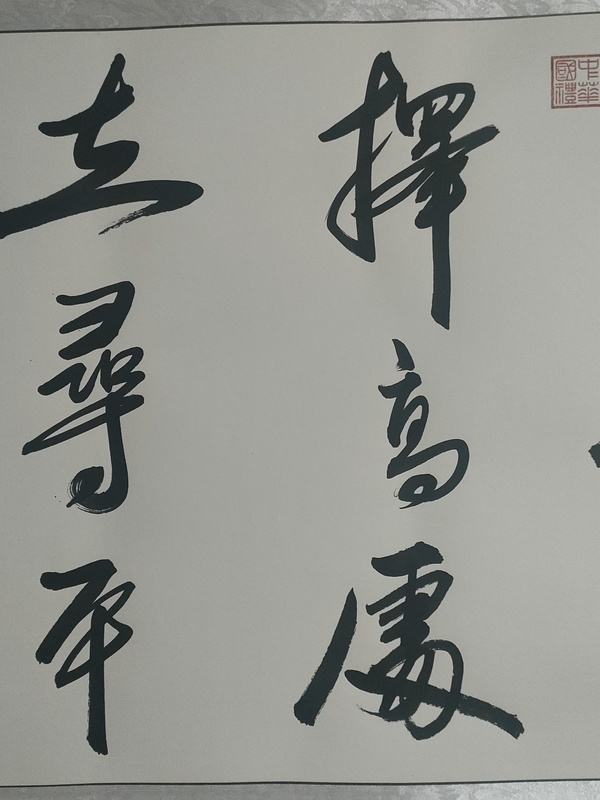 中華
國禮
擇高處
立尋平